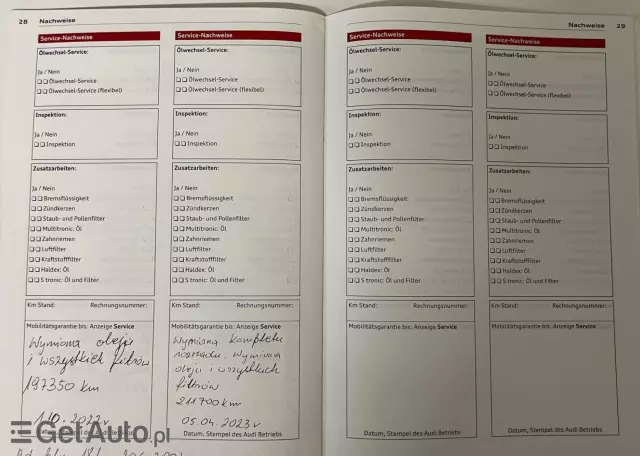 28 Nachweise
Service-Nachweise
Ölwechsel-Service:
Ja / Nein
Ölwechsel-Service
Ölwechsel-Service (flexibel)
Inspektion:
Ja / Nein
Inspektion
Zusatzarbeiten:
Ja / Nein
Bremsflüssigkeit
Zündkerzen
Staub- und Pollenfilter
Multitronic: Öl
Zahnriemen
Luftfilter
Kraftstofffilter
Haldex: Öl
S tronic: Öl und Filter
Km Stand: Rechnungsnummer:
Mobilitätsgarantie bis: Anzeige Service
Wymiana oleju
i wszystkich filtrów
197350 km
Datum, Stempel des Audi Betriebs
Service-Nachweise
Ölwechsel-Service:
Ja / Nein
Ölwechsel-Service
Ölwechsel-Service (flexibel)
Inspektion:
Ja / Nein
Inspektion
Zusatzarbeiten:
Ja / Nein
Bremsflüssigkeit
Zündkerzen
Staub- und Pollenfilter
Multitronic: Öl
Zahnriemen
Luftfilter
Kraftstofffilter
Haldex: Öl
S tronic: Öl und Filter
Km Stand: Rechnungsnummer:
Mobilitätsgarantie bis: Anzeige Service
Wymiana kompletu
rozrządu. Wymiana
oleju i wszystkich
filtrów
211700 km
05.04.2023 r
Datum, Stempel des Audi Betriebs
Nachweise 29
Service-Nachweise
Ölwechsel-Service:
Ja / Nein
Ölwechsel-Service
Ölwechsel-Service (flexibel)
Inspektion:
Ja / Nein
Inspektion
Zusatzarbeiten:
Ja / Nein
Bremsflüssigkeit
Zündkerzen
Staub- und Pollenfilter
Multitronic: Öl
Zahnriemen
Luftfilter
Kraftstofffilter
Haldex: Öl
S tronic: Öl und Filter
Km Stand: Rechnungsnummer:
Mobilitätsgarantie bis: Anzeige Service
Datum, Stempel des Audi Betriebs
Service-Nachweise
Ölwechsel-Service:
Ja / Nein
Ölwechsel-Service
Ölwechsel-Service (flexibel)
Inspektion:
Ja / Nein
Inspektion
Zusatzarbeiten:
Ja / Nein
Bremsflüssigkeit
Zündkerzen
Staub- und Pollenfilter
Multitronic: Öl
Zahnriemen
Luftfilter
Kraftstofffilter
Haldex: Öl
S tronic: Öl und Filter
Km Stand: Rechnungsnummer:
Mobilitätsgarantie bis: Anzeige Service
Datum, Stempel des Audi Betriebs
GetAuto.pl